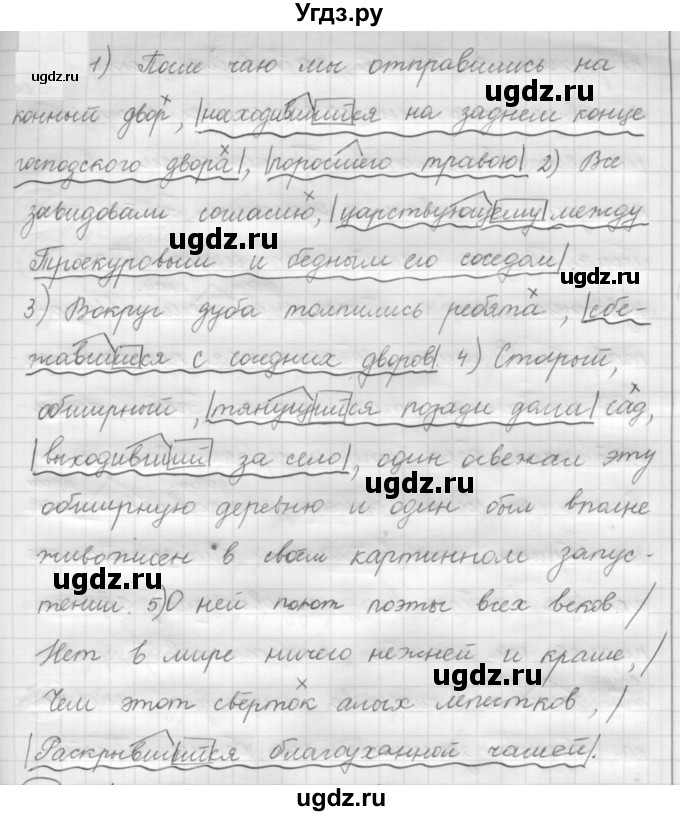 Угдз.ру
ugdz.ru
1) После чаю мы отправились на
ugdz.ru
конный двор, находившийся на заднем конце
господского двора, поросшего травою 2) Все
завидовали согласию, царствующему между
ugdz.ru
Троекуровым и бедным его соседом
ugdz.ru
3) Вокруг дуба толпились ребята, сбе-
жавшиеся с соседних дворов. 4) Старый,
обширный, тянущийся позади дома сад,
выходивший за село, один освежал эту
ugdz.ru
обширную деревню и один был вполне
живописен в своем картинном запус-
ugdz.ru
тении. 5) О ней поют поэты всех веков /
Нет в мире ничего нежней и краше, /
ugdz.ru
Чем этот свёрток алых лепестков, /
Раскрывшийся благоуханной чашей.
ugdz.ru